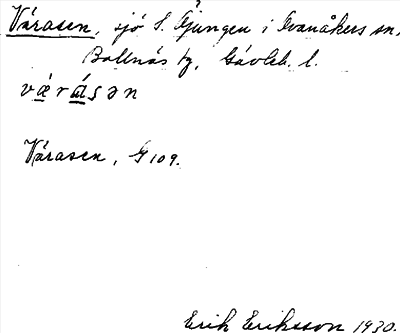 Vårasen, sjö S. Gjungen i Svanåkers sn,
Bollnäs tg, Gävleb. l.
værásən
Vårasen, G 109.
Erik Eriksson 1930.